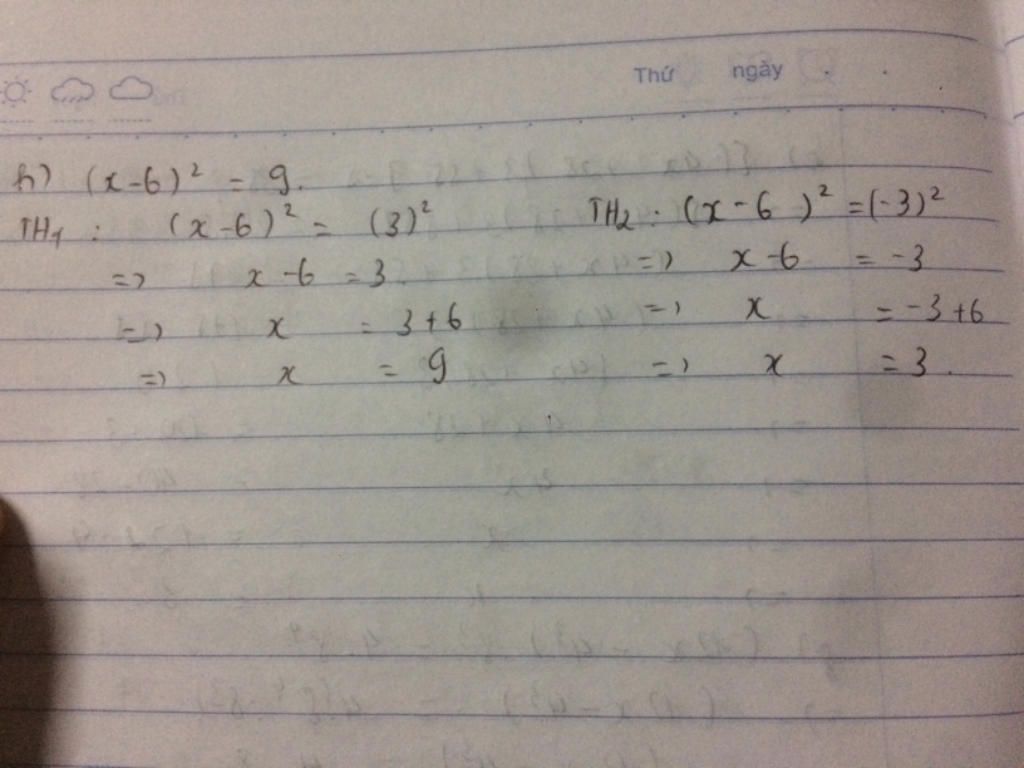 Thứ ngày
h) (x-6)² = 9.
TH1 : (x-6)² = (3)²
=> x-6 = 3.
=> x = 3+6
=> x = 9
TH2 : (x-6)² = (-3)²
=> x-6 = -3
=> x = -3+6
=> x = 3.